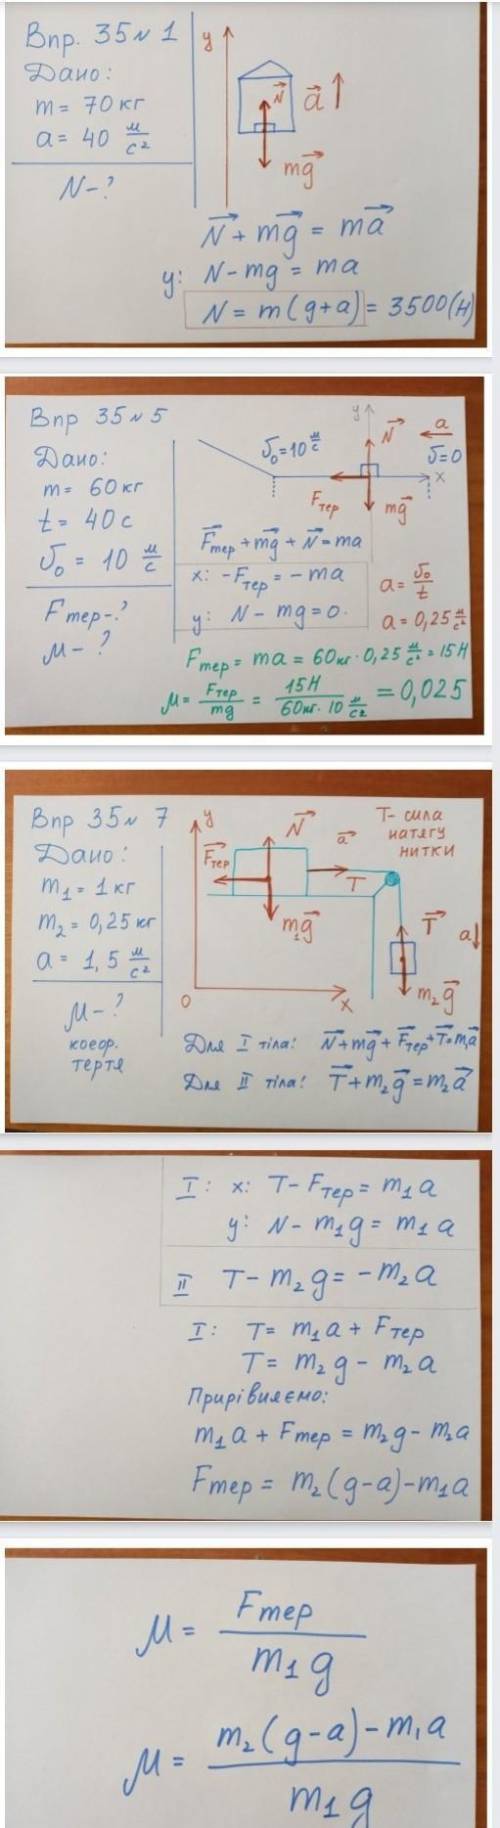 Впр. 35 № 1
Дано:
m = 70 кг
a = 40 м/с²
N - ?
y
N⃗
a⃗
mg⃗
N⃗ + mg⃗ = ma⃗
y: N - mg = ma
N = m(g+a) = 3500(Н)
Впр 35 № 5
Дано:
m = 60 кг
t = 40 с
υ₀ = 10 м/с
Fтер - ?
μ - ?
y
υ₀ = 10 м/с
N⃗
a
υ = 0
x
Fтер
mg⃗
F⃗тер + mg⃗ + N⃗ = ma
x: -Fтер = -ma
y: N - mg = 0.
a = υ₀/t
a = 0,25 м/с²
Fтер = ma = 60кг · 0,25 м/с² = 15Н
μ = Fтер/mg = 15Н/60кг·10 м/с² = 0,025
Впр 35 № 7
Дано:
m₁ = 1 кг
m₂ = 0,25 кг
a = 1,5 м/с²
μ - ?
коеф.
тертя
y
F⃗тер
N⃗
a⃗
T
m₁g⃗
T - сила
натягу
нитки
T⃗
a
m₂g⃗
0
x
Для I тіла: N⃗ + mg⃗ + F⃗тер + T⃗ = m₁a⃗
Для II тіла: T⃗ + m₂g⃗ = m₂a⃗
I: x: T - Fтер = m₁a
y: N - m₁g = m₁a
II T - m₂g = -m₂a
I: T = m₁a + Fтер
T = m₂g - m₂a
Прирівняємо:
m₁a + Fтер = m₂g - m₂a
Fтер = m₂(g-a) - m₁a
μ = Fтер/m₁g
μ = m₂(g-a) - m₁a/m₁g